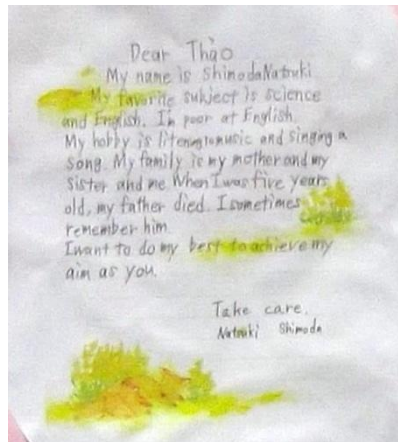 Dear Thảo
My name is Shimoda Natsuki
My favorite subject is science
and English. I'm poor at English.
My hobby is litening to music and singing a
song. My family is my mother and my
sister and me. When I was five years
old, my father died. I sometimes
remember him.
I want to do my best to achieve my
aim as you.
Take care.
Natsuki Shimoda